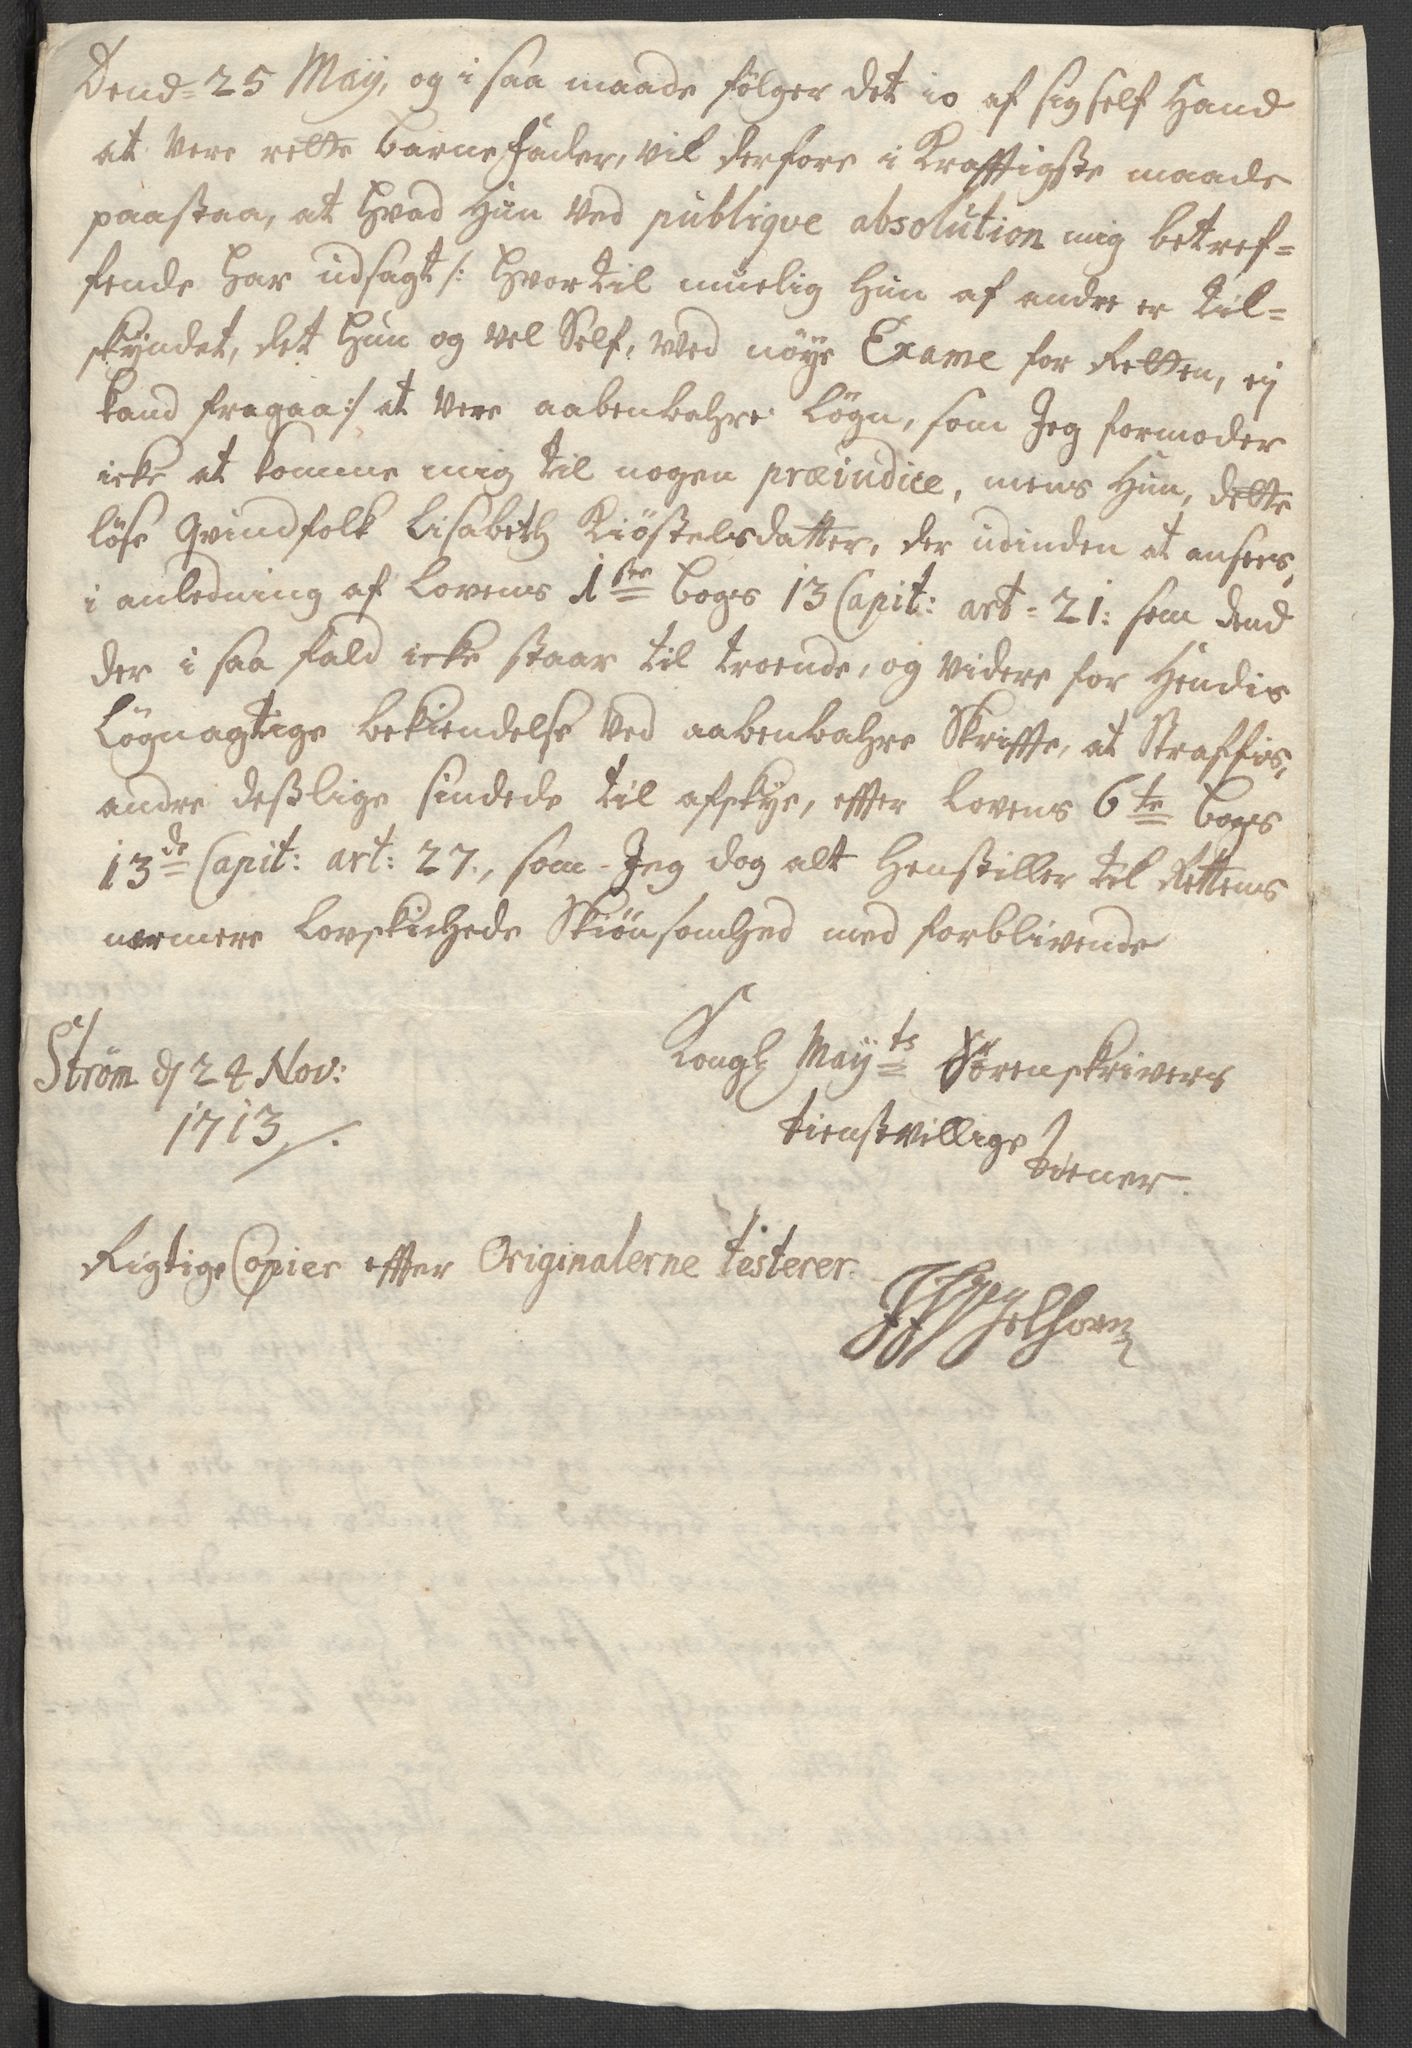 Dend 25 Maÿ, og i saa maade fölger det io af sig self Hand
at vere rette barne fader, vil derfore i Krafftigste maade
paastaa, at hvad Hun ved publiqve absolution mig betref=
fende har udsagt /: hvortil muelig Hun af andre er til=
skÿndet, det hun og vel Self, ved nöÿe Exame for Retten, eÿ
kand fragaa :/ at vere aabenbahre Lögn, som Jeg formoder
icke at komme mig til nogen præiudice, mens Hun, dette
löse qvindfolk Lisabeth Kiöstelsdatter, der udinden at ansees,
i anledning af Lovens 1ste bogs 13 Capit: art= 21: som dend
der i saa fald icke staar til troende, og videre for Hendis
Lögnagtige bekiendelse ved aabenbahre Skriffte, at Straffis,
andre desslige sindede til afskÿe, effter Lovens 6te bogs
13de Capit: art: 27., som Jeg dog alt Henstiller til Rettens
nermere Lovskichede Skiönsomhed med forblivende
Kongl Maÿts Sörenskrivers
Ström d 24 Nov:
1713 /.
tienstvillige
tiener.
Rigtige Copier effter Originalerne testerer